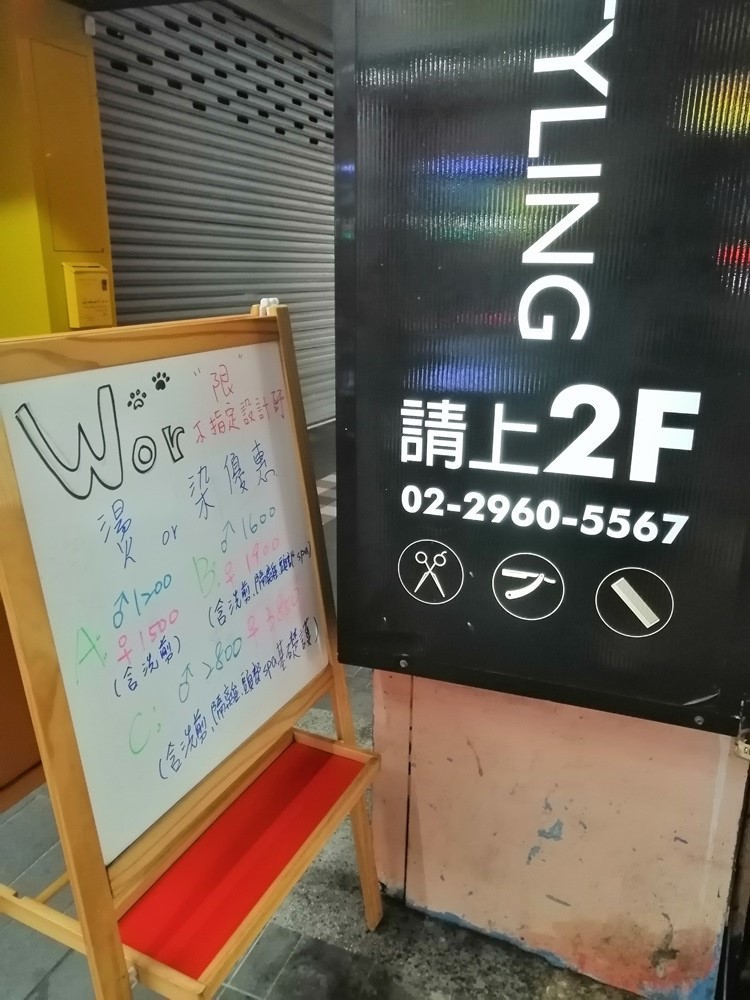 Wor
"限"
不指定設計師
燙 or 染優惠
A: ♂1200
♀1500
(含洗剪)
B: ♂1600
♀1900
(含洗剪,隔離,頭皮spa)
C: ♂2800 ♀
(含洗剪,隔離,頭皮spa,基礎護)
TYLING
請上2F
02-2960-5567